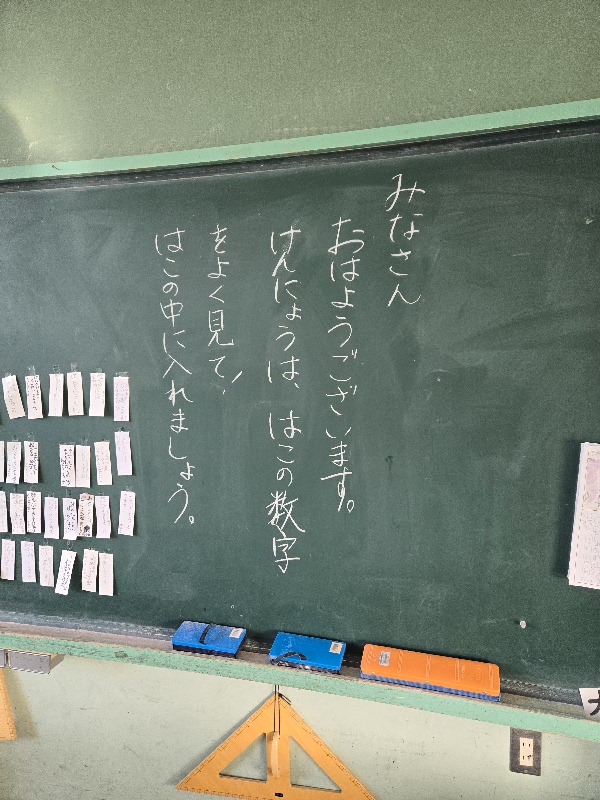 みなさん
おはようございます。
けんにょうは、はこの数字
をよく見て、
はこの中に入れましょう。